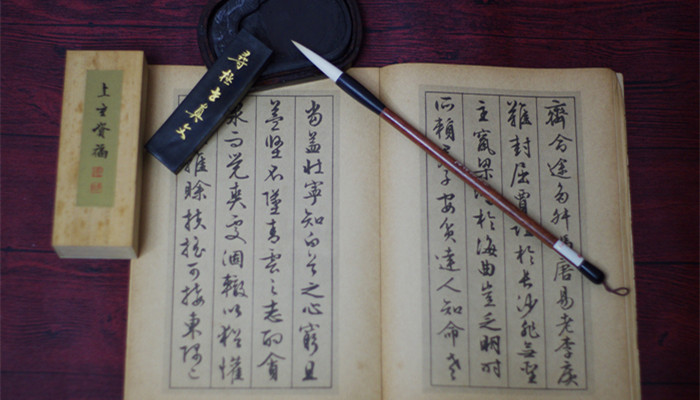 齊命途多舛馮唐易老李廣
難封屈賈於長沙非無聖
主竄梁於海曲豈乏明時
所賴子安貧達人知命老
當益壯寧知白首之心窮且
益堅不墜青雲之志酌貪
泉而覺爽處涸轍以猶懽
雖賒扶搖可接東隅已